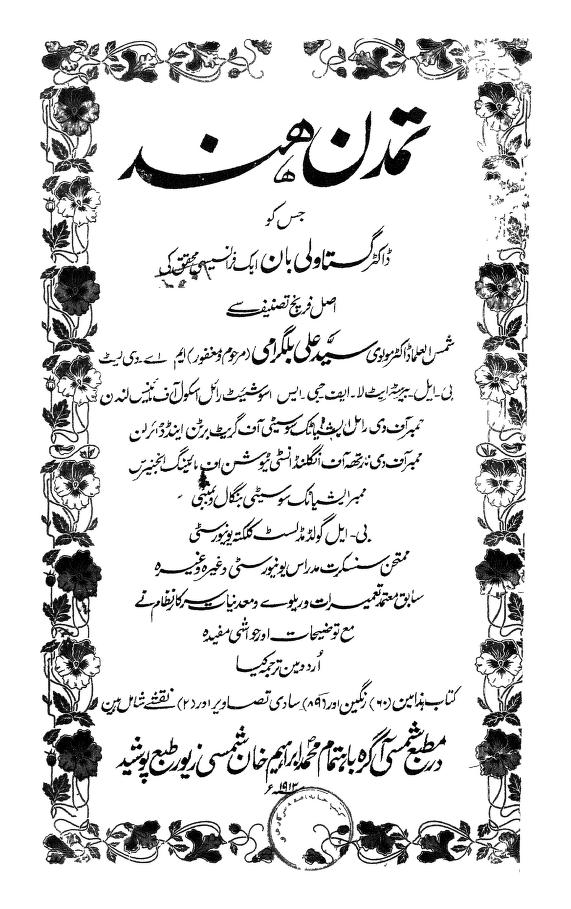 تمدن ہند
جس کو
ڈاکٹر گستاولی بان ایک فرانسیسی محقق کی
اصل فرنچ تصنیف سے
شمس العلما ڈاکٹر مولوی سید علی بلگرامی (مرحوم و مغفور) ایم اے ۔ ڈی لیٹ
بی ۔ ایل ۔ بیرسٹرایٹ لا ۔ ایف جی ۔ ایس اسوشیئٹ رائل اسکول آف مائینس لندن
ممبر آف دی رائل ایشیاٹک سوسیٹی آف گریٹ برٹن اینڈ ائرلن
ممبر آف دی نارتھ آف انگلنڈ انسٹی ٹیوشن اف مائینگ انجنیرس
ممبر ایشیاٹک سوسیٹی بنگال و بمبئی
بی ۔ ایل گولڈ مڈلسٹ کلکتہ یونیورسٹی
ممتحن سنسکرت مدراس یونیورسٹی وغیرہ وغیرہ
سابق معتمد تعمیرات و ریلوے و معدنیات سرکار نظام نے
مع توضیحات اور حواشی مفیدہ
اُردو مین ترجمہ کیا
کتاب ہذا مین (۶۰) رنگین اور (۸۹) سادی تصاویر اور (۲) نقشے شامل ہین
در مطبع شمسی آگرہ باہتمام محمد ابراہیم خان شمسی زیور طبع پوشید
۱۹۱۳ء